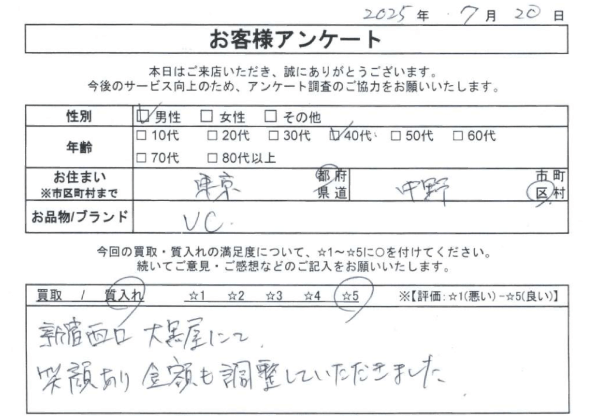 2025年 7月 20日
お客様アンケート
本日はご来店いただき、誠にありがとうございます。
今後のサービス向上のため、アンケート調査のご協力をお願いいたします。
性別 □男性 □女性 □その他
年齢 □10代 □20代 □30代 □40代 □50代 □60代
□70代 □80代以上
お住まい ※市区町村まで 東京 都府県道 中野 市町区村
お品物/ブランド VC.
今回の買取・質入れの満足度について、☆1～☆5に○を付けてください。
続いてご意見・ご感想などのご記入をお願いいたします。
買取 / 質入れ ☆1 ☆2 ☆3 ☆4 ☆5 ※【評価:☆1(悪い)−☆5(良い)】
新宿西口 大黒屋にて
笑顔あり 金額も調整していただきました